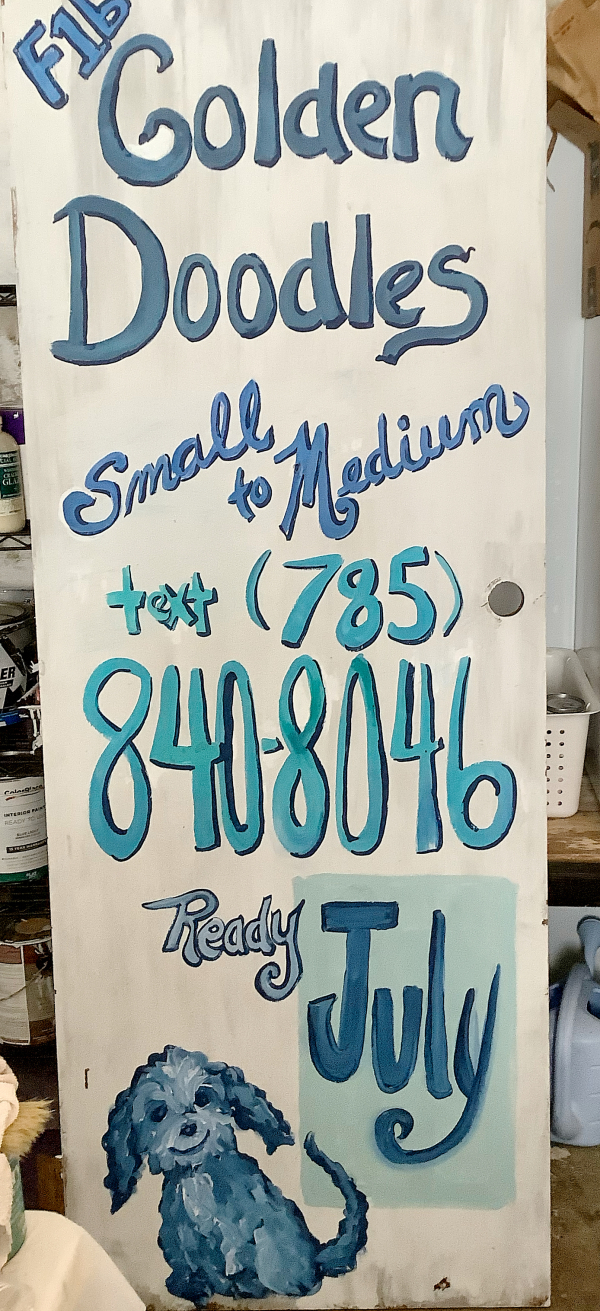 F1b
Golden
Doodles
Small
to Medium
text (785)
840-8046
Ready
July